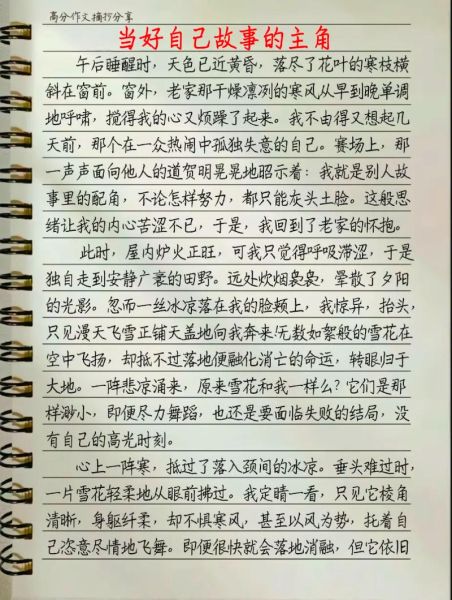 高分作文摘抄分享
当好自己故事的主角
午后睡醒时，天色已近黄昏，落尽了花叶的寒枝横
斜在窗前。窗外，老家那干燥凛冽的寒风从早到晚单调
地呼啸，搅得我的心又烦躁了起来。我不由得又想起几
天前，那个在一众热闹中孤独失意的自己。赛场上，那
一声声面向他人的道贺明晃晃地昭示着：我就是别人故
事里的配角，不论怎样努力，都只能灰头土脸。这般思
绪让我的内心苦涩不已，于是，我回到了老家的怀抱。
此时，屋内炉火正旺，可我只觉得呼吸滞涩，于是
独自走到安静广袤的田野。远处炊烟袅袅，晕散了夕阳
的光影。忽而一丝冰凉落在我的脸颊上，我惊异，抬头，
只见漫天飞雪正铺天盖地向我奔来!无数如絮般的雪花在
空中飞扬，却抵不过落地便融化消亡的命运，转眼归于
大地。一阵悲凉涌来，原来雪花和我一样么?它们是那
样渺小，即便尽力舞蹈，也还是要面临失败的结局，没
有自己的高光时刻。
心上一阵寒，抵过了落入颈间的冰凉。垂头难过时，
一片雪花轻柔地从眼前拂过。我定睛一看，只见它棱角
清晰，身躯纤柔，却不惧寒风，甚至以风为势，托着自
己恣意尽情地飞舞。即便很快就会落地消融，但它依旧